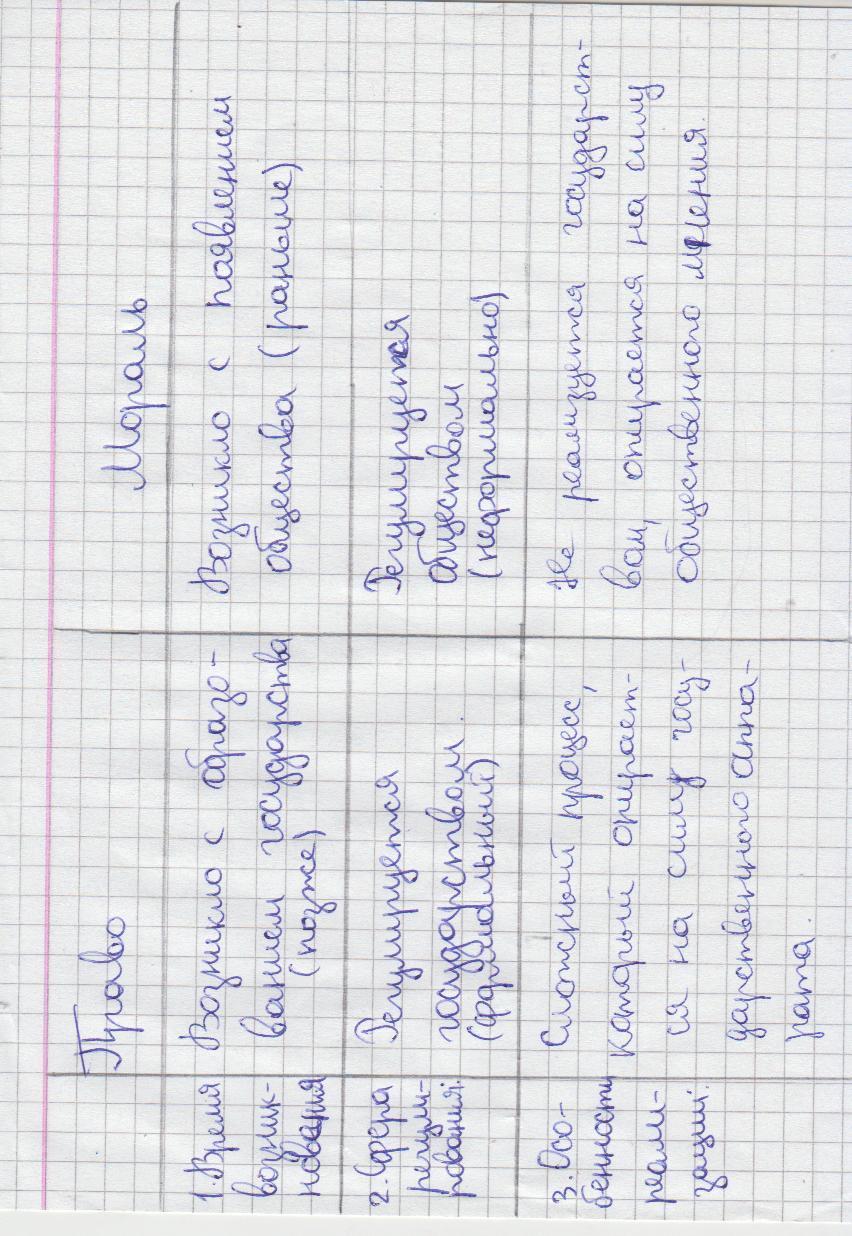 Право
Мораль
1. Время
возник-
новения
Возникло с образо-
ванием государства
(позже)
Возникло с появлением
общества (раньше)
2. Сфера
регули-
рования:
Регулируется
государством.
(формальный)
Регулируется
обществом
(неформально)
3. Осо-
бенности
реали-
зации:
Сложный процесс,
который опирает-
ся на силу госу-
дарственного аппа-
рата.
Не реализуется государст-
вом, опирается на силу
общественного мнения.